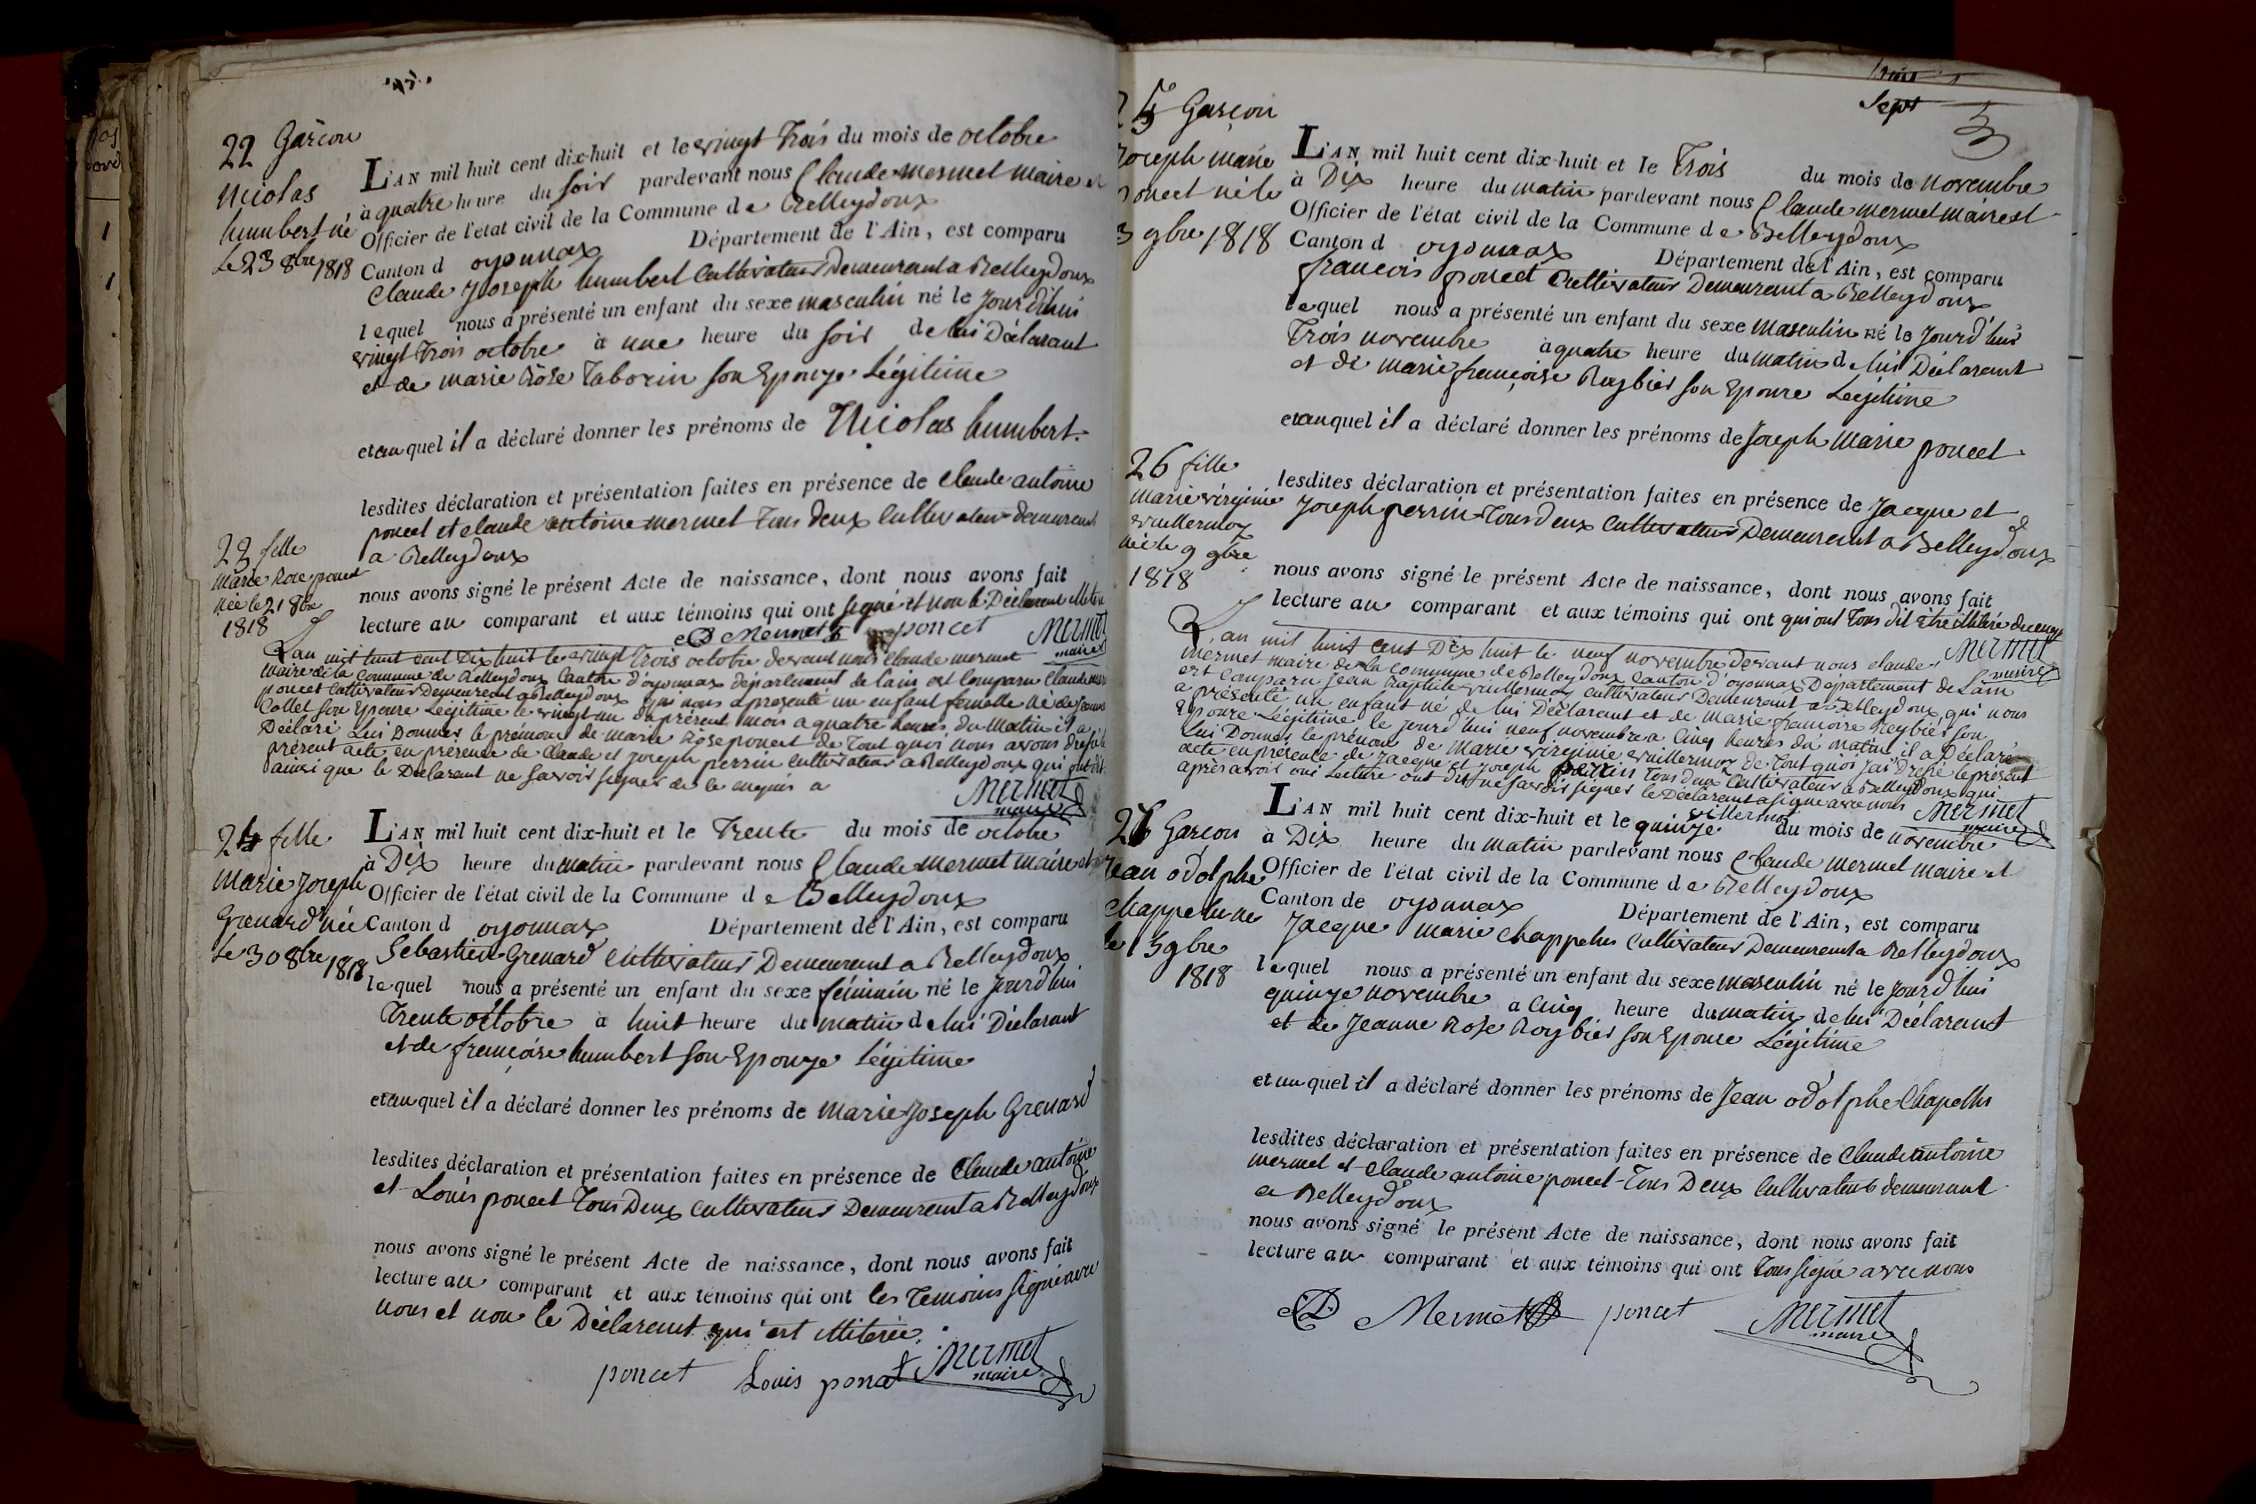 22 Garcon
Nicolas
humbert né
le 23 8bre 1818
L'AN mil huit cent dix-huit et le vingt Trois du mois de octobre
à quatre heure du soir pardevant nous Claude mermet maire et
Officier de l'état civil de la Commune de Belleydoux
Canton d oyonnax Département de l'Ain, est comparu
Claude Joseph humbert Cultivateur Demeurant a Belleydoux
lequel nous a présenté un enfant du sexe masculin né le Jourd'hui
vingt Trois octobre à une heure du soir de lui Déclarant
et de marie Rose Taborin son Epouze Légitime
et auquel il a déclaré donner les prénoms de Nicolas humbert.
lesdites déclaration et présentation faites en présence de Claude antoine
poncet et claude antoine mermet Tous deux Cultivateur demeurant
a Belleydoux
nous avons signé le présent Acte de naissance, dont nous avons fait
lecture au comparant et aux témoins qui ont signé et non le Déclarant
Mermet poncet Mermet
maire
23 fille
Marie Rose poncet
née le 21 8bre
1818
L'an mil huit cent Dix huit le vingt Trois octobre devant nous Claude mermet
maire de la Commune de Belleydoux Canton d'oyonnax département de Lain est Comparu Claude
poncet Cultivateur Demeurant a Belleydoux qui nous a presenté un enfant femelle né de
Collet son Epouse Légitime le vingt un du présent mois a quatre heures du Matin il a
Déclaré Lui Donner le prénom de marie Rose poncet de Tout quoi nous avons dressé le
présent acte en présence de Claude et Joseph perrin cultivateur a Belleydoux qui ont dit
ainsi que le Déclarant ne savoir signer de ce enquis a
Mermet
maire
24 fille
Marie Joseph
Grenard née
le 30 8bre 1818
L'AN mil huit cent dix-huit et le Trente du mois de octobre
à Dix heure du matin pardevant nous Claude mermet maire et
Officier de l'état civil de la Commune de Belleydoux
Canton d oyonnax Département de l'Ain, est comparu
Sebastien Grenard Cultivateur Demeurant a Belleydoux
lequel nous a présenté un enfant du sexe féminin né le jourd'hui
Trente octobre à huit heure du matin de lui Déclarant
et de françoise humbert son Epouze Légitime
et auquel il a déclaré donner les prénoms de Marie Joseph Grenard
lesdites déclaration et présentation faites en présence de Claude antoine
et Louis poncet Tous Deux Cultivateur Demeurant a Belleydoux
nous avons signé le présent Acte de naissance, dont nous avons fait
lecture au comparant et aux témoins qui ont les Temoins signé avec
nous et non le Déclarant qui est illiterée.
poncet Louis poncet Mermet
maire
Sept
25 Garçon
Joseph marie
poncet né le
3 9bre 1818
L'AN mil huit cent dix-huit et le Trois du mois de novembre
à Dix heure du matin pardevant nous Claude mermet maire et
Officier de l'état civil de la Commune de Belleydoux
Canton d oyonnax Département de l'Ain, est comparu
francois poncet Cultivateur Demeurant a Belleydoux
lequel nous a présenté un enfant du sexe masculin né le Jourd'hui
Trois novembre à quatre heure du matin de lui Déclarant
et de marie françoise Roybier son Epouse Légitime
et auquel il a déclaré donner les prénoms de Joseph Marie poncet
lesdites déclaration et présentation faites en présence de Jacque et
Joseph perrin Tous deux Cultivateur Demeurant a Belleydoux
nous avons signé le présent Acte de naissance, dont nous avons fait
lecture au comparant et aux témoins qui ont qui ont Tous dit être illitéré
Mermet
maire
26 fille
marie virginie
vuillermoz
née le 9 9bre
1818
L'an mil huit cent Dix huit le neuf novembre devant nous claude
mermet maire de la commune de Belleydoux Canton d'oyonnax Département de Lain
est comparu Jean Baptiste vuillermoz cultivateur Demeurant a Belleydoux qui nous
a présenté un enfant né de lui Déclarant et de marie francoise Reybier son
Epouze Légitime le jourd'hui neuf novembre a Cinq heures du matin il a Déclaré
Lui Donner le prénom de Marie virginie vuillermoz de Tout quoi j'ai Dressé le présent
acte en présence de Jacque et Joseph perrin Tous deux Cultivateur a Belleydoux qui
après avoir oui Lecture ont dit ne savoir signer le Déclarant a signé avec nous
villermoz Mermet
maire
27 Garçon
Jean odolphe
Chappelu né
le 15 9bre
1818
L'AN mil huit cent dix-huit et le quinze du mois de novembre
à Dix heure du matin pardevant nous Claude mermet maire et
Officier de l'état civil de la Commune de Belleydoux
Canton de oyonnax Département de l'Ain, est comparu
Jacque marie Chappelus Cultivateur Demeurant a Belleydoux
lequel nous a présenté un enfant du sexe masculin né le jourd'hui
quinze novembre a Cinq heure du matin de lui Déclarant
et de Jeanne Rose Roybier son Epouse Légitime
et auquel il a déclaré donner les prénoms de Jean odolphe Chapellu
lesdites déclaration et présentation faites en présence de Claude antoine
mermet et Claude antoine poncet Tous Deux Cultivateurs demeurant
a Belleydoux
nous avons signé le présent Acte de naissance, dont nous avons fait
lecture au comparant et aux témoins qui ont Tous signé avec nous
Mermet poncet Mermet
maire